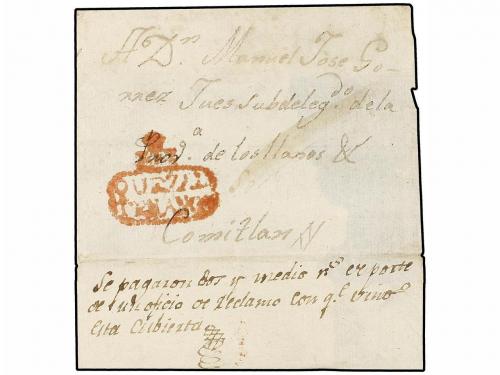 A Dn. Manuel Jose Go-
mez Jues Subdelegdo. de la
de los llanos &
Comitlan
Se pagaron dos y medio rs. el porte
de un oficio de Reclamo con qe. vino
esta Cubierta